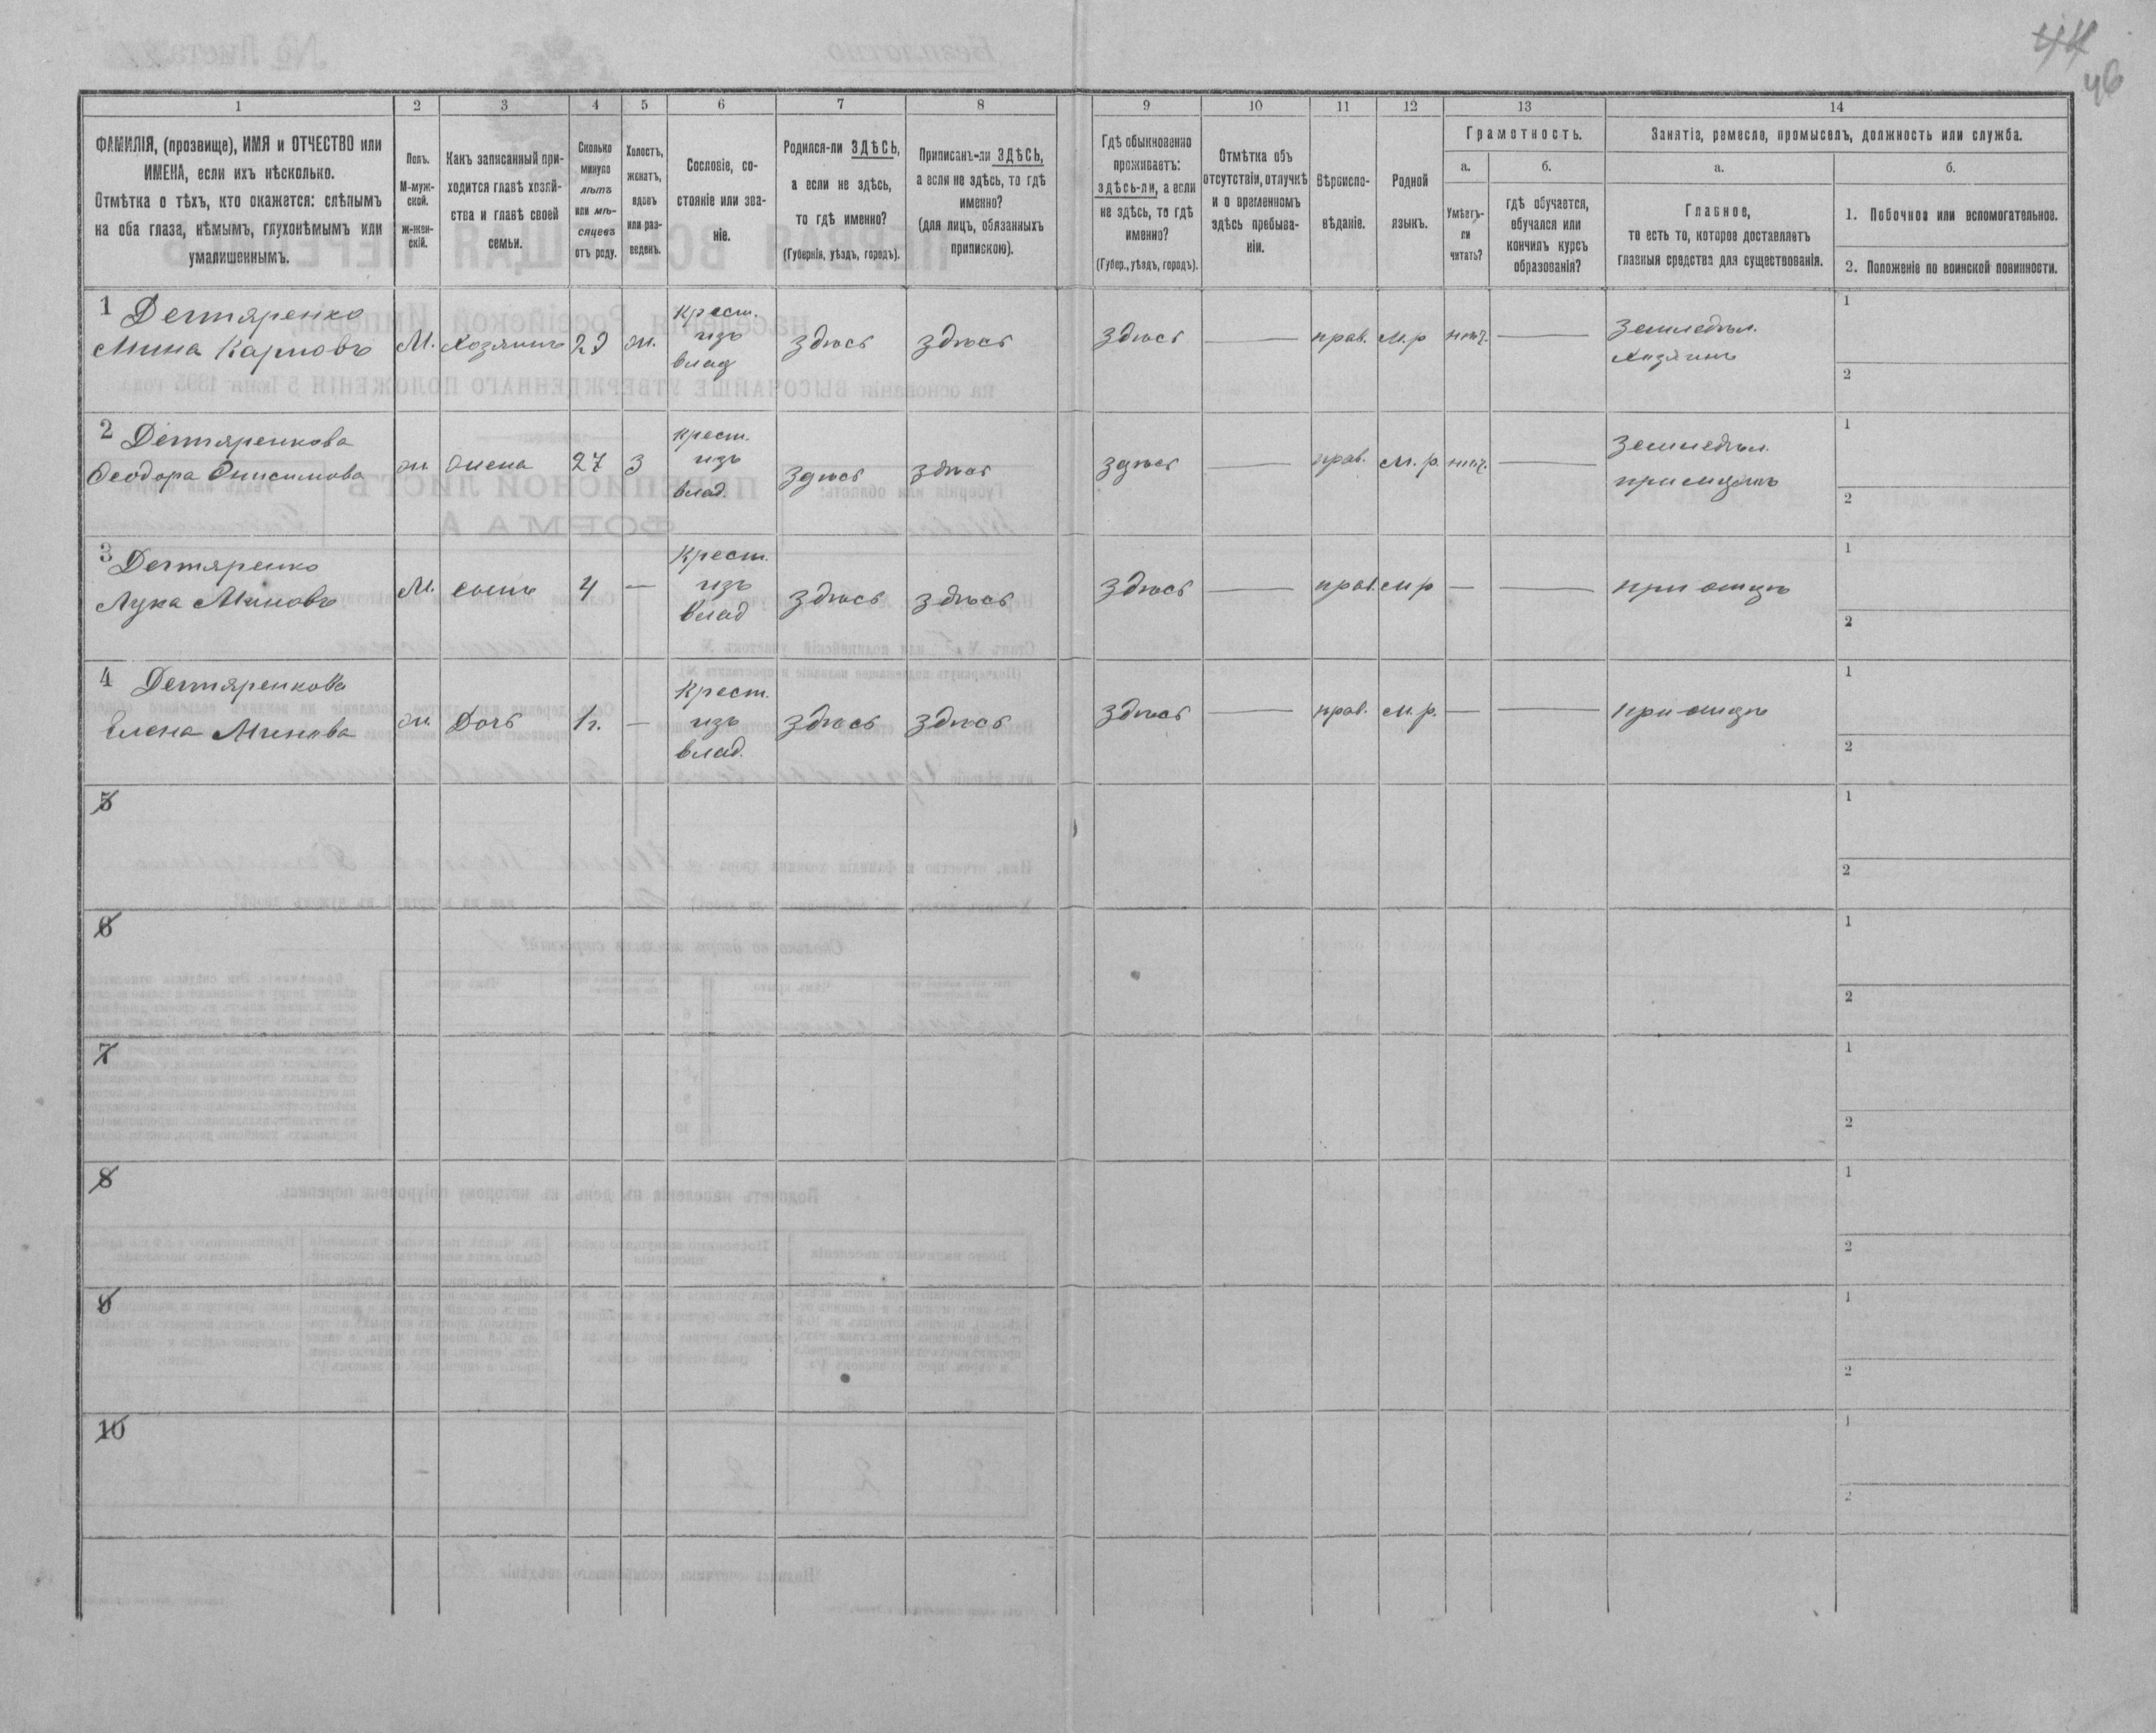 44
46
1
2
3
4
5
6
7
8
9
10
11
12
13
14
ФАМИЛІЯ, (прозвище), ИМЯ и ОТЧЕСТВО или
ИМЕНА, если ихъ нѣсколько.
Отмѣтка о тѣхъ, кто окажется: слѣпымъ
на оба глаза, нѣмымъ, глухонѣмымъ или
умалишеннымъ.
Полъ.
М-муж-
ской.
Ж-жен-
скій.
Какъ записанный при-
ходится главѣ хозяй-
ства и главѣ своей
семьи.
Сколько
минуло
лѣтъ
или мѣ-
сяцевъ
отъ роду.
Холостъ,
женатъ,
вдовъ
или раз-
веденъ.
Сословіе, со-
стояніе или зва-
ніе.
Родился-ли ЗДѢСЬ,
а если не здѣсь,
то гдѣ именно?
(Губернія, уѣздъ, городъ).
Приписанъ-ли ЗДѢСЬ,
а если не здѣсь, то гдѣ
именно?
(для лицъ, обязанныхъ
припискою).
Гдѣ обыкновенно
проживаетъ:
здѣсь-ли, а если
не здѣсь, то гдѣ
именно?
(Губер., уѣздъ, городъ).
Отмѣтка объ
отсутствіи, отлучкѣ
и о временномъ
здѣсь пребыва-
ніи.
Вѣроиспо-
вѣданіе.
Родной
языкъ.
Грамотность.
а.
б.
Умѣетъ-
ли
читать?
гдѣ обучается,
обучался или
кончилъ курсъ
образованія?
Занятіе, ремесло, промыселъ, должность или служба.
а.
б.
Главное,
то есть то, которое доставляетъ
главныя средства для существованія.
1. Побочное или вспомогательное.
2. Положеніе по воинской повинности.
1 Дегтяренко
Мина Карповъ
М.
Хозяинъ
29
ж.
Крест.
изъ
влад
здѣсь
здѣсь
здѣсь
—
прав.
м.р
нѣт.
—
Земледѣл.
хозяинъ
1
2
2 Дегтяренкова
Феодора Онисимова
ж.
жена
27
З
крест.
изъ
влад.
здѣсь
здѣсь
здѣсь
—
прав.
м. р.
нѣт.
—
Земледѣл.
при мужѣ
1
2
3 Дегтяренко
Лука Миновъ
М.
сынъ
4
—
Крест.
изъ
влад
здѣсь
здѣсь
здѣсь
—
прав.
м р
—
—
при отцѣ
1
2
4 Дегтяренкова
Елена Минова
ж.
Дочь
1г.
—
Крест.
изъ
влад.
здѣсь
здѣсь
здѣсь
—
прав.
м. р.
—
—
при отцѣ
1
2
5
1
2
6
1
2
7
1
2
8
1
2
9
1
2
10
1
2